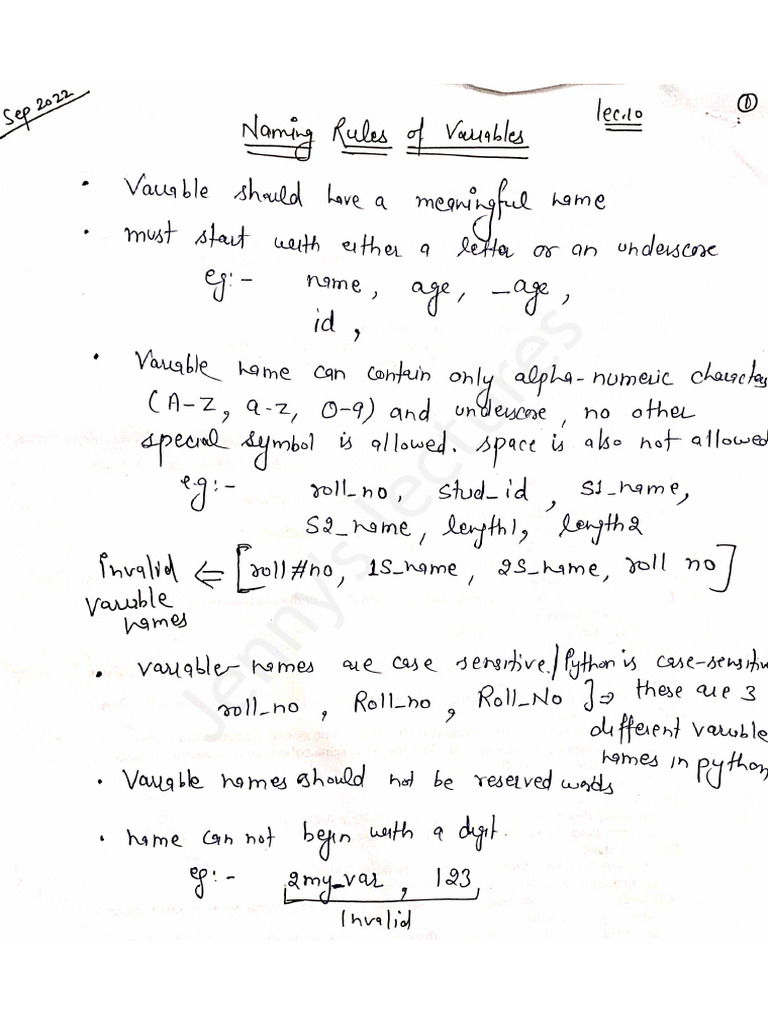 Sep 2022
lec.10
①
Naming Rules of Variables
• Variable should have a meaningful name
• must start with either a letter or an underscore
eg:- name, age, _age,
id,
• Variable name can contain only alpha-numeric characters
(A-Z, a-z, 0-9) and underscore, no other
special symbol is allowed. space is also not allowed
e.g:- roll_no, stud_id, S1_name,
S2_name, length1, length2
invalid variable names ⇐ [roll#no, 1S_name, 2S_name, roll no]
• variable names are case sensitive./Python is case-sensitive
roll_no, Roll_no, Roll_No ]⇒ these are 3
different variable
names in python
• Variable names should not be reserved words
• name can not begin with a digit.
eg:- 2my_var, 123
Invalid
Jenny's lectures